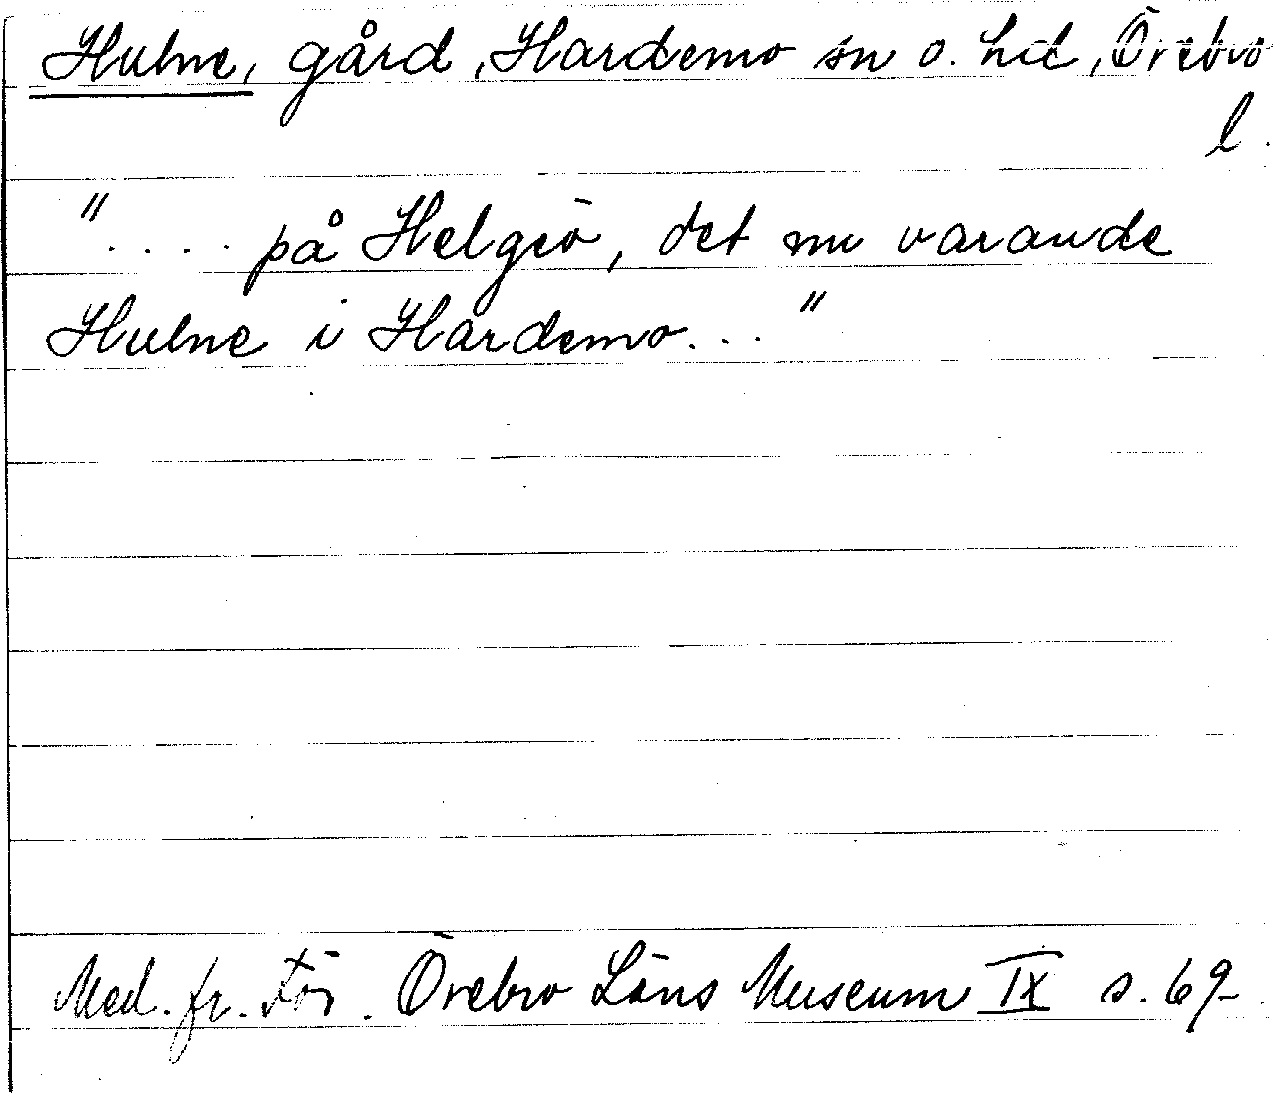 Hulne, gård, Hardemo sn o. hd, Örebro
l.
".... på Helgeö, det nu varande
Hulne i Hardemo..."
Med. fr. För. Örebro Läns Museum IX s. 69